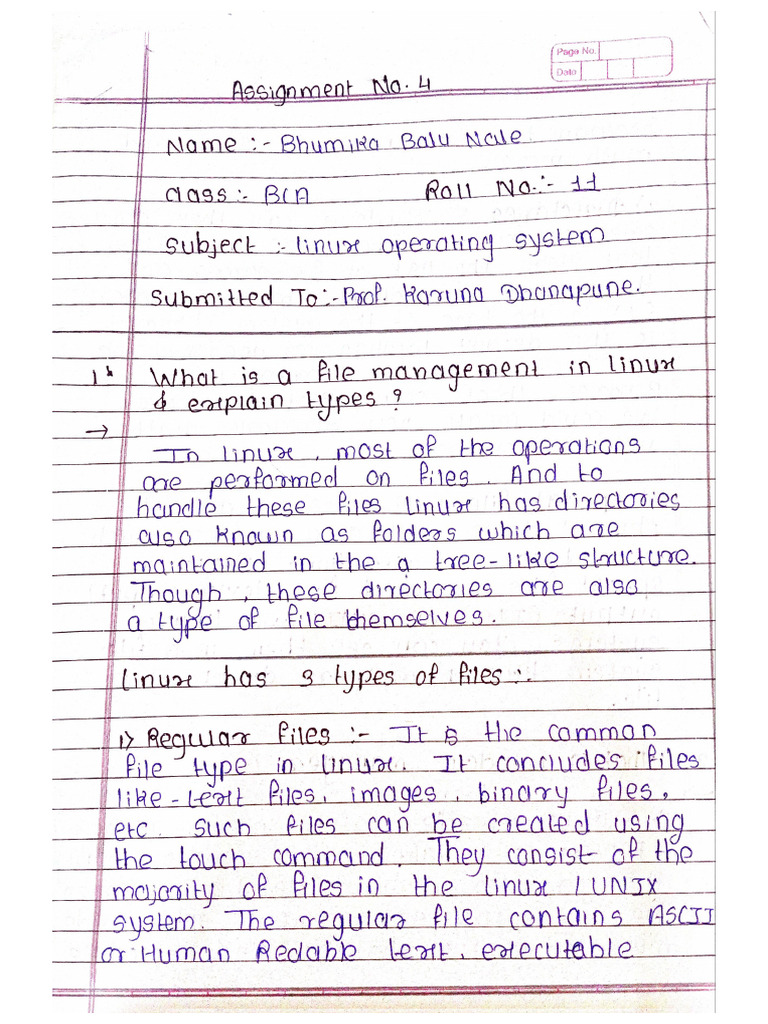 Page No.
Date
Assignment No. 4
Name :- Bhumika Balu Nale
class :- BCA Roll No. :- 11
Subject :- linux operating system
Submitted To :- Prof. Karuna Dhanapune.
1* What is a file management in linux
& explain types ?
→
In linux, most of the operations
are performed on files. And to
handle these files linux has directories
also known as folders which are
maintained in the a tree-like structure.
Though, these directories are also
a type of file themselves.
linux has 3 types of files :.
1) Regular files :- It is the comman
file type in linux. It concludes files
like - text files, images, binary files,
etc. Such files can be created using
the touch command. They consist of the
majority of files in the linux / UNIX
system. The regular file contains ASCII
or Human Redable text, executable